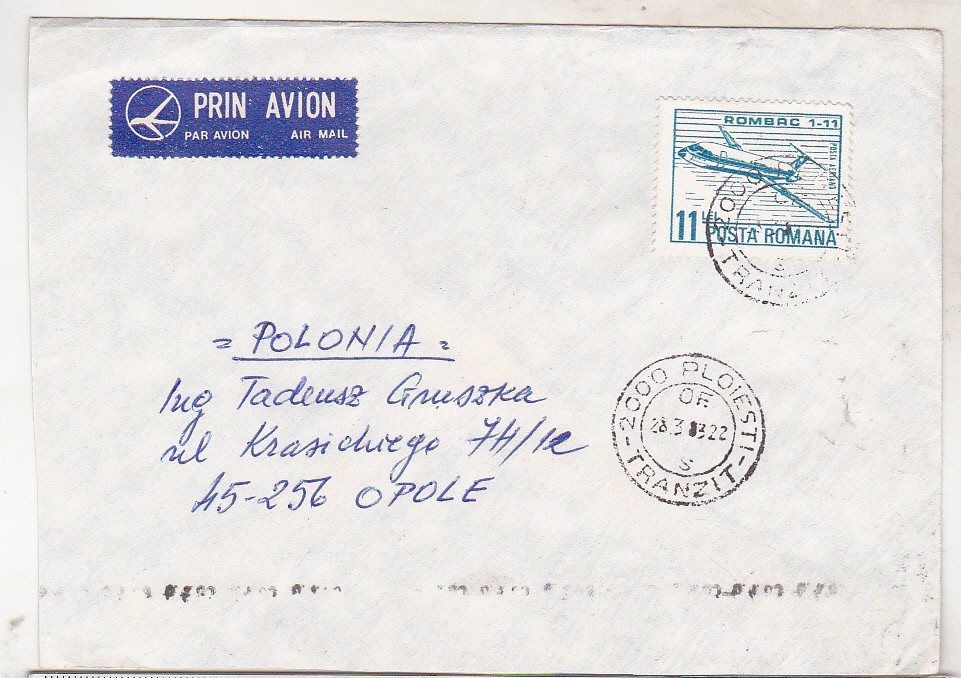 PRIN AVION
PAR AVION AIR MAIL
ROMBAC 1-11
POSTA AERIANA
11 L
POSTA ROMANA
2000
TRANZ
= POLONIA =
Ing Tadeusz Gruszka
ul Krasickiego 7H/1e
45-256 OPOLE
2000 PLOIESTI
OF.
28.3 83 22
S
TRANZIT